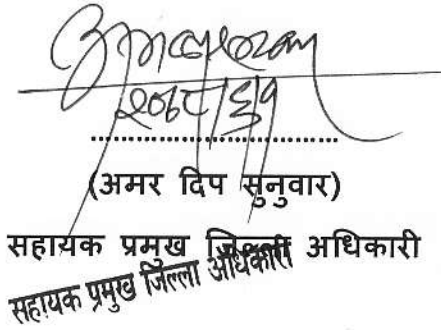 २०७८/६/१
........................................
(अमर दिप सुनुवार)
सहायक प्रमुख जिल्ला अधिकारी
सहायक प्रमुख जिल्ला अधिकारी